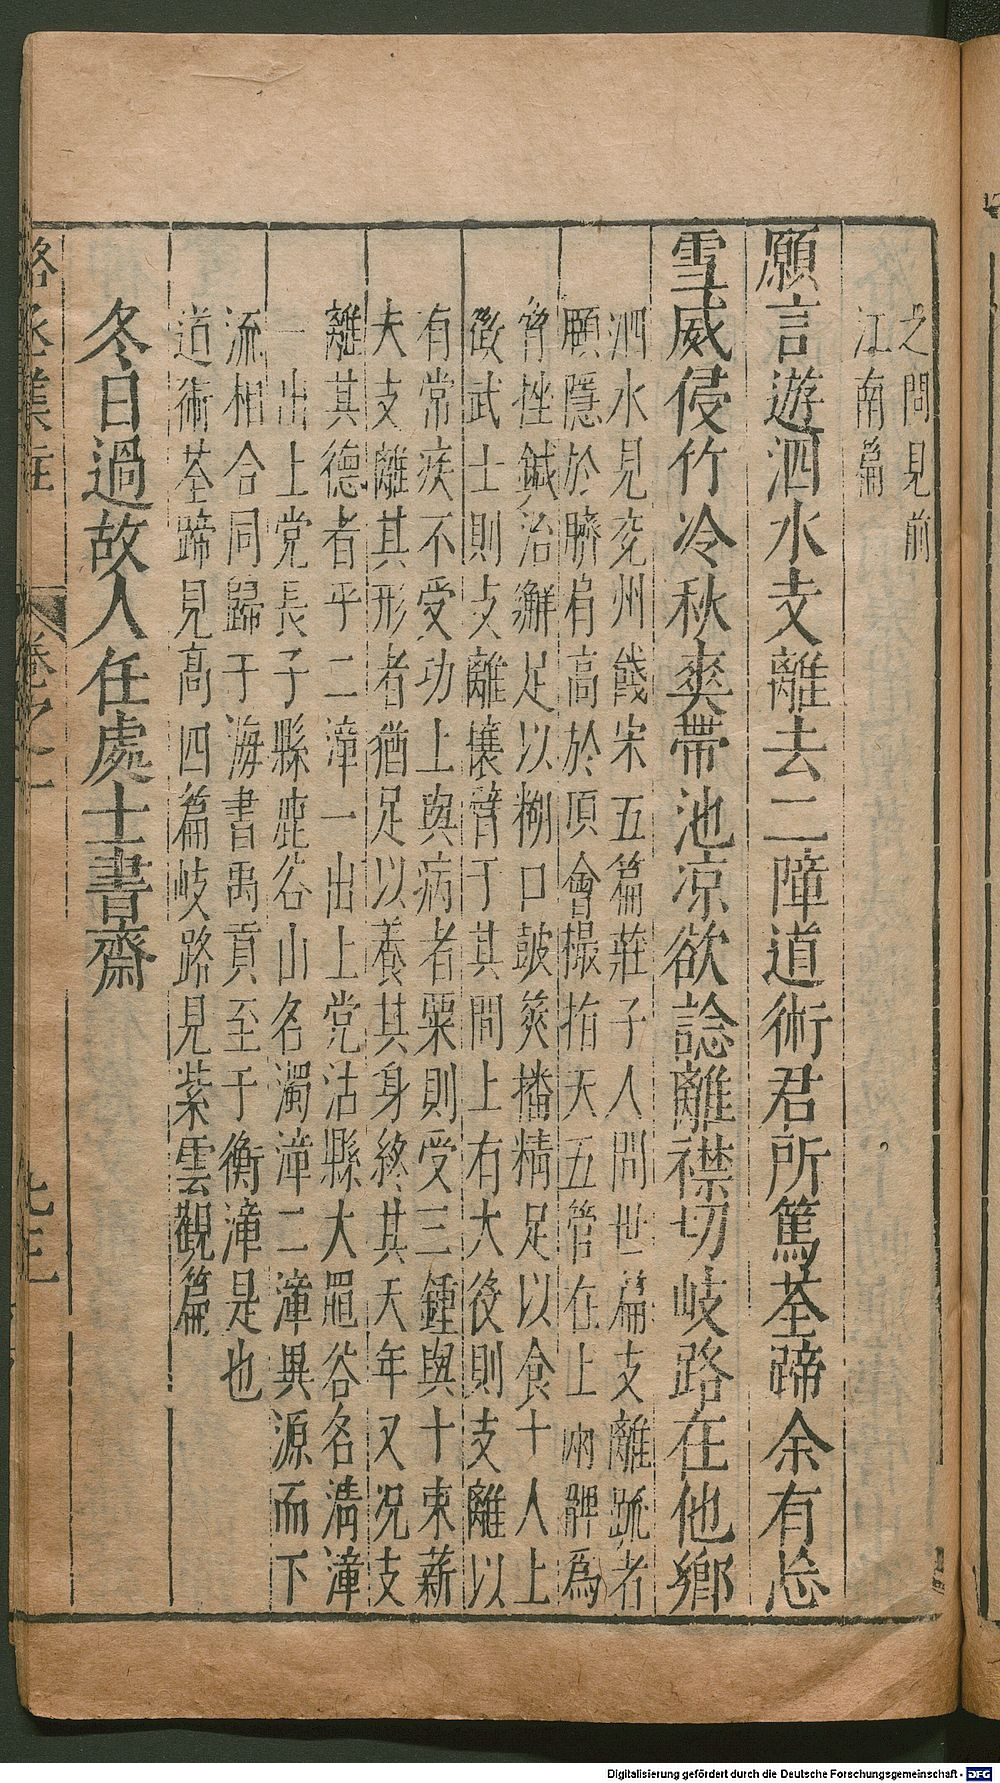 之間見前
江南篇
願言遊泗水支離去二障道術君所篤荃蹄余有忘
雪威侵竹冷秋爽帶池凉欲諗離襟切岐路在他鄉
泗水見兖州餞宋五篇莊子人間世篇支離䟽者
頤隱於臍肩高於頂會撮指天五管在上兩髀爲
脅挫鍼治繲足以糊口鼓筴播精足以食十人上
徵武士則支離攘臂于其間上有大役則支離以
有常疾不受功上與病者粟則受三鍾與十束薪
夫支離其形者猶足以養其身終其天年又况支
離其德者乎二漳一出上党沽縣大黽谷名淸漳
一出上党長子縣鹿谷山名濁漳二漳異源而下
流相合同歸于海書禹貢至于衡漳是也
道術荃蹄見高四篇岐路見紫雲觀篇
冬日過故人任處士書齋
駱丞集註
卷之一
九三
Digitalisierung gefördert durch die Deutsche Forschungsgemeinschaft - DFG